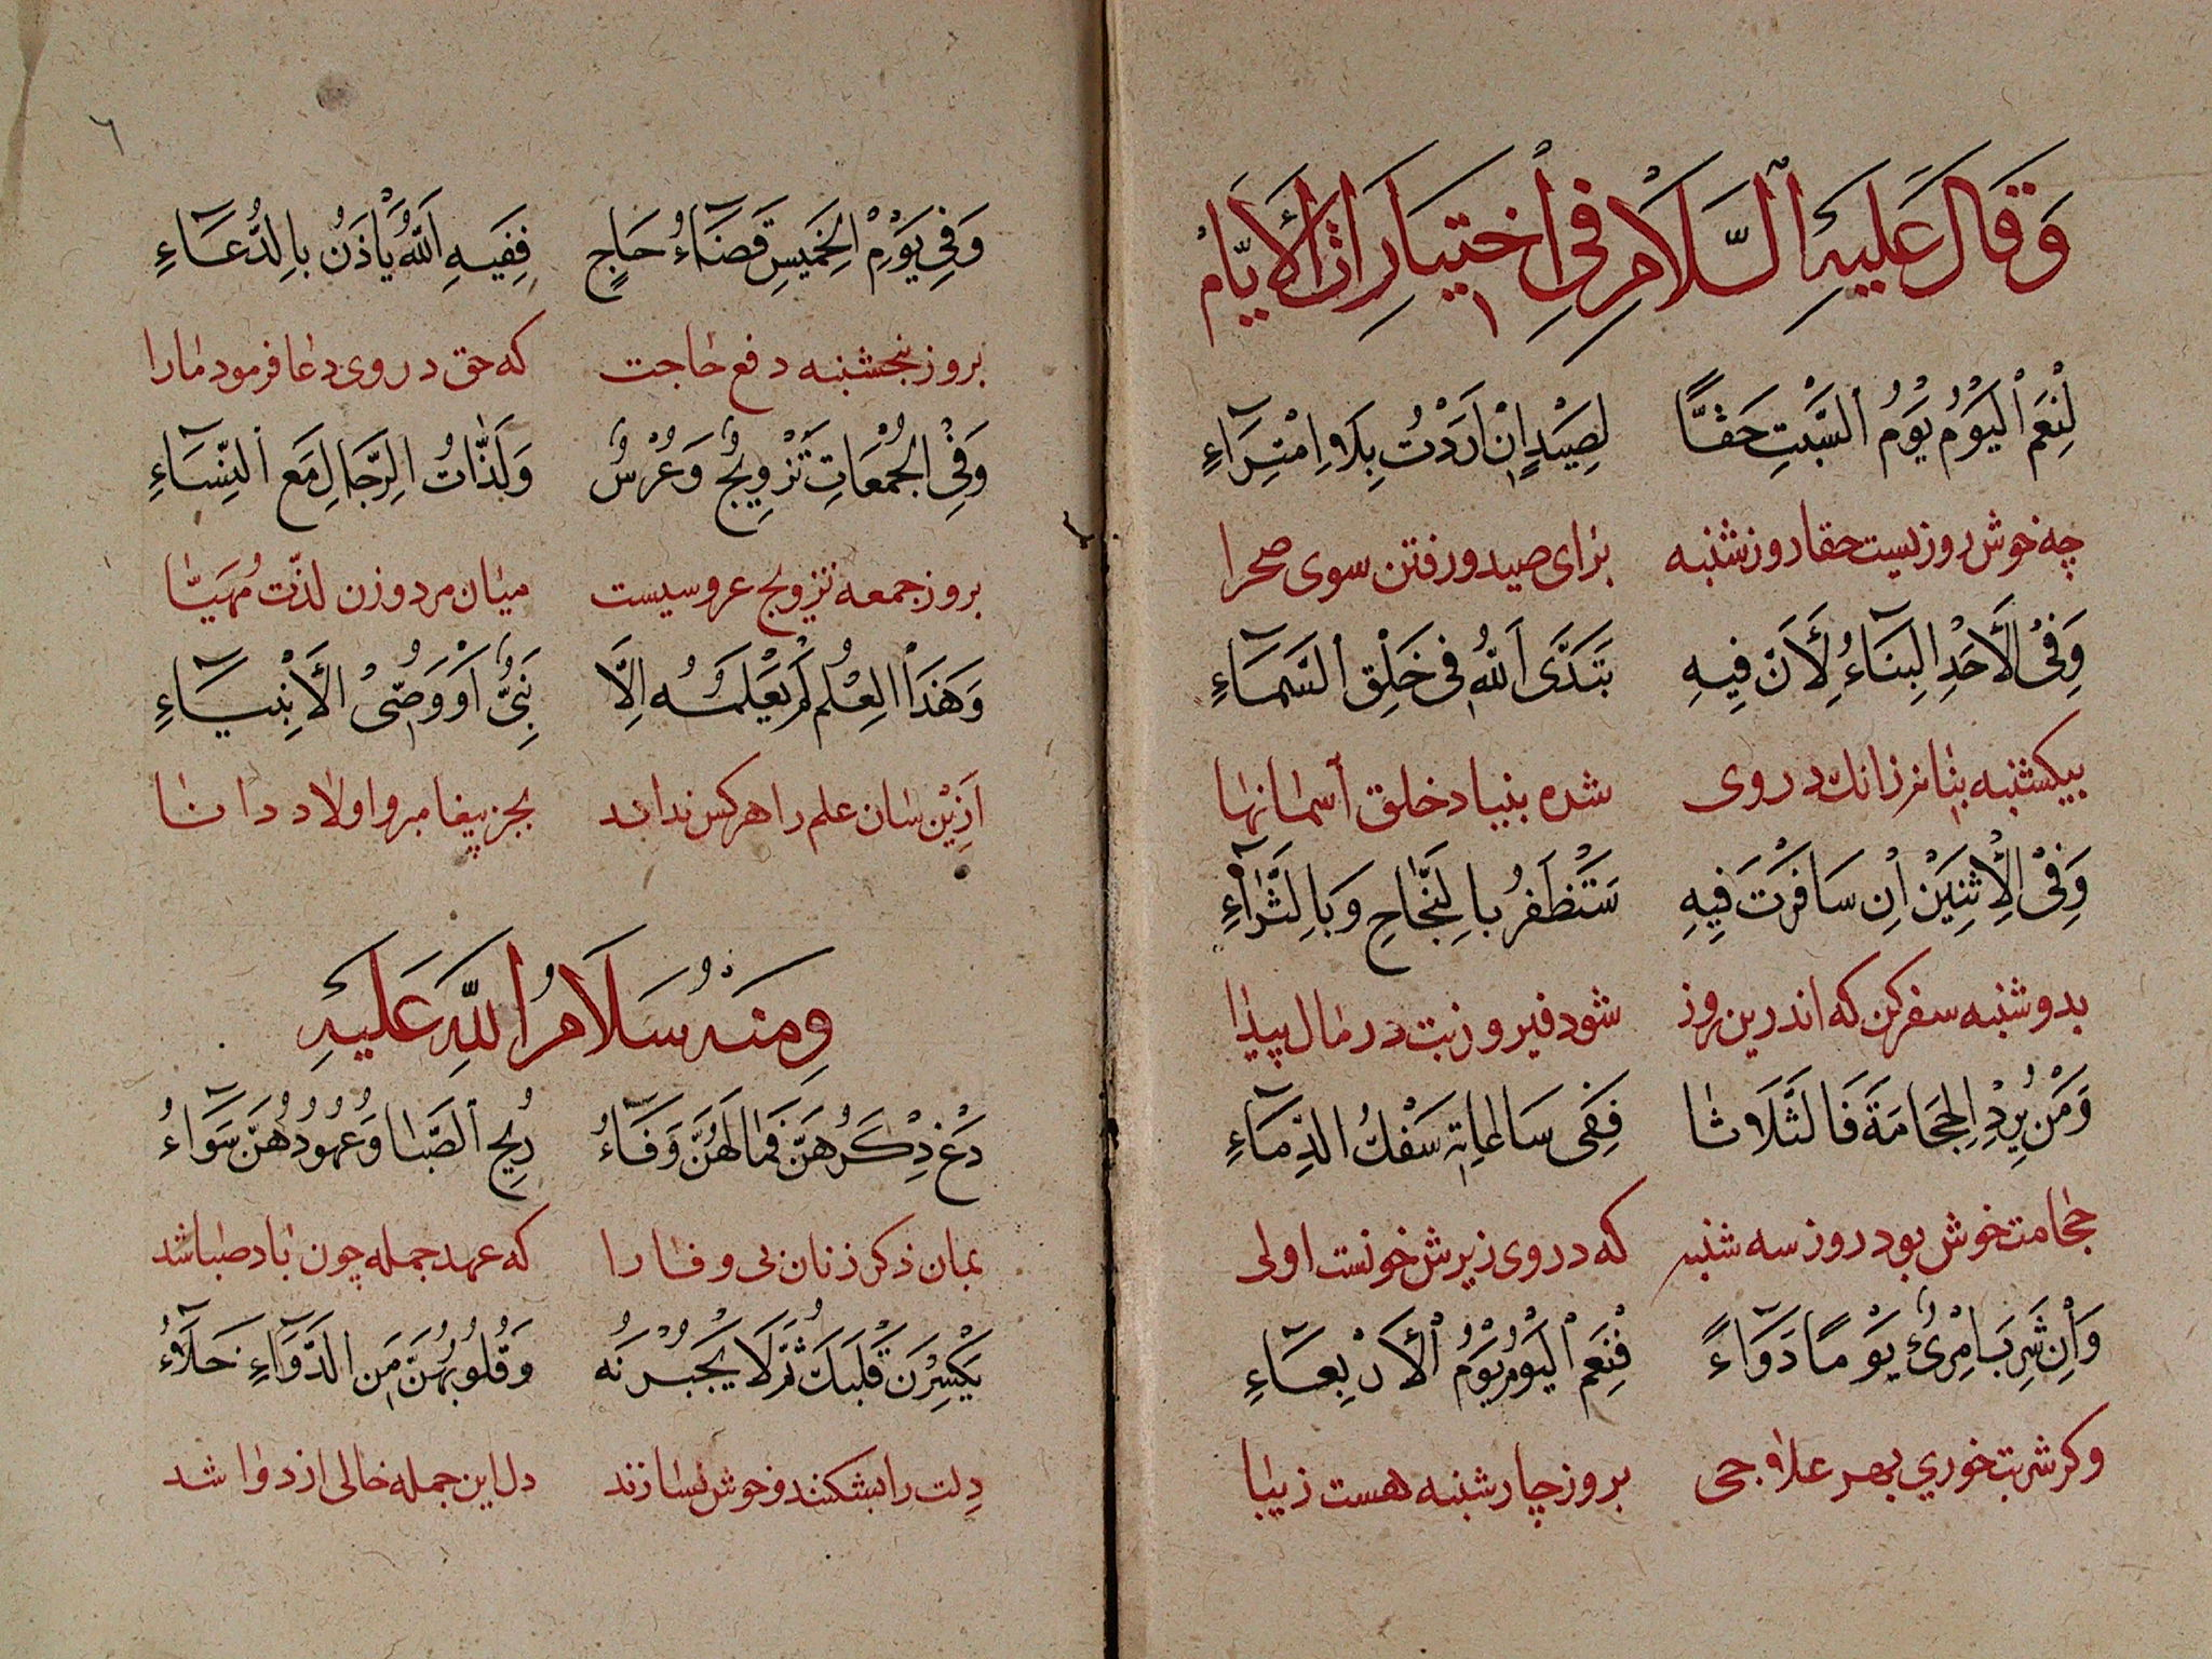 وَقَالَ عَلَيْهِ ٱلسَّلَامُ فِي ٱخْتِيَارَاتِ ٱلْأَيَّامِ
لَنِعْمَ ٱلْيَوْمُ يَوْمُ ٱلسَّبْتِ حَقًّا لِصَيْدٍ إِنْ أَرَدْتَ بِلَا ٱمْتِرَآءِ
چه خوش روزیست حقا روز شنبه برای صید و رفتن سوی صحرا
وَفِي ٱلْأَحَدِ ٱلْبِنَآءُ لِأَنَّ فِيهِ تَبَدَّى ٱللّٰهُ فِي خَلْقِ ٱلسَّمَآءِ
بیکشنبه بنا نرزانك در وی شده بنیاد خلق آسمانها
وَفِي ٱلْإِثْنَيْنِ إِنْ سَافَرْتَ فِيهِ سَتَظْفَرُ بِالنَّجَاحِ وَبِالثَّرَآءِ
بدوشنبه سفر کن که اندرین روز شود فیروزیت در مال پیدا
وَمَنْ يُرِدِ ٱلْحِجَامَةَ فَالثَّلَاثَا فَفِي سَاعَاتِهِ سَفْكُ ٱلدِّمَآءِ
حجامت خوش بود روز سه شنبه که در وی زیرش خونست اولی
وَإِنْ شَرِبَ ٱمْرِئٌ يَوْمًا دَوَآءً فَنِعْمَ ٱلْيَوْمُ يَوْمُ ٱلْأَرْبِعَآءِ
وکر شربت خوري بهر علاجی بروز چارشنبه هست زیبا
٦
وَفِي يَوْمِ ٱلْخَمِيسِ قَضَآءُ حَاجٍ فَفِيهِ ٱللّٰهُ يَأْذَنُ بِالدُّعَآءِ
بروز پنجشنبه دفع حاجت که حق در وی دعا فرمود مارا
وَفِي ٱلْجُمُعَاتِ تَزْوِيجٌ وَعُرْسٌ وَلَذَّاتُ ٱلرِّجَالِ مَعَ ٱلنِّسَآءِ
بروز جمعه تزویج عروسیست میان مرد و زن لذّت مُهَیَّا
وَهٰذَا ٱلْعِلْمُ لَمْ يَعْلَمْهُ إِلَّا نَبِيٌّ أَوْ وَصِيُّ ٱلْأَنْبِيَآءِ
ازین سان علم را هرکس نداند بجز پیغامبر و اولاد دانا
وَمِنْهُ سَلَامُ ٱللّٰهِ عَلَيْهِ
دَعْ ذِكْرَهُنَّ فَمَا لَهُنَّ وَفَآءُ رِيحُ ٱلصَّبَا وَعُهُودُهُنَّ سَوَآءُ
بمان ذکر زنان بی وفا را که عهد جمله چون باد صبا شد
يَكْسِرْنَ قَلْبَكَ ثُمَّ لَا يَجْبُرْنَهُ وَقُلُوبُهُنَّ مِنَ ٱلدَّوَآءِ خَلَآءُ
دلت را بشکنند و خوش نسازند دل این جمله خالی از دوا شد